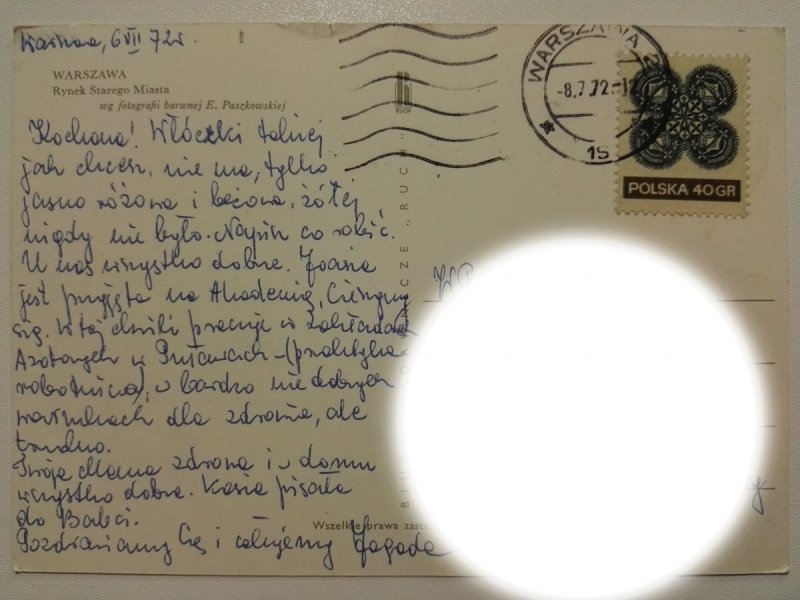 Warszawa, 6 VII 72r.
WARSZAWA
Rynek Starego Miasta
wg fotografii barwnej E. Paszkowskiej
RUCH
WARSZAWA 2
-8.7.72-12
19
POLSKA 40 GR
Kochana! Włóczki takiej
jak chcesz, nie ma, tylko
jasno różowa i beżowa, żółtej
nigdy nie było. Napisz co robić.
U nas wszystko dobrze. Joasia
jest przyjęta na Akademię, Cieszymy
się. W tej chwili pracuje w Zakładach
Azotowych w Puławach – (praktyka
robotnicza), w bardzo niedobrych
warunkach dla zdrowia, ale
trudno.
Twoja Mama zdrowa i w domu
wszystko dobrze. Kasia pisała
do Babci.
Pozdrawiamy Cię i całujemy Jagoda
"RUCH"
Wszelkie prawa